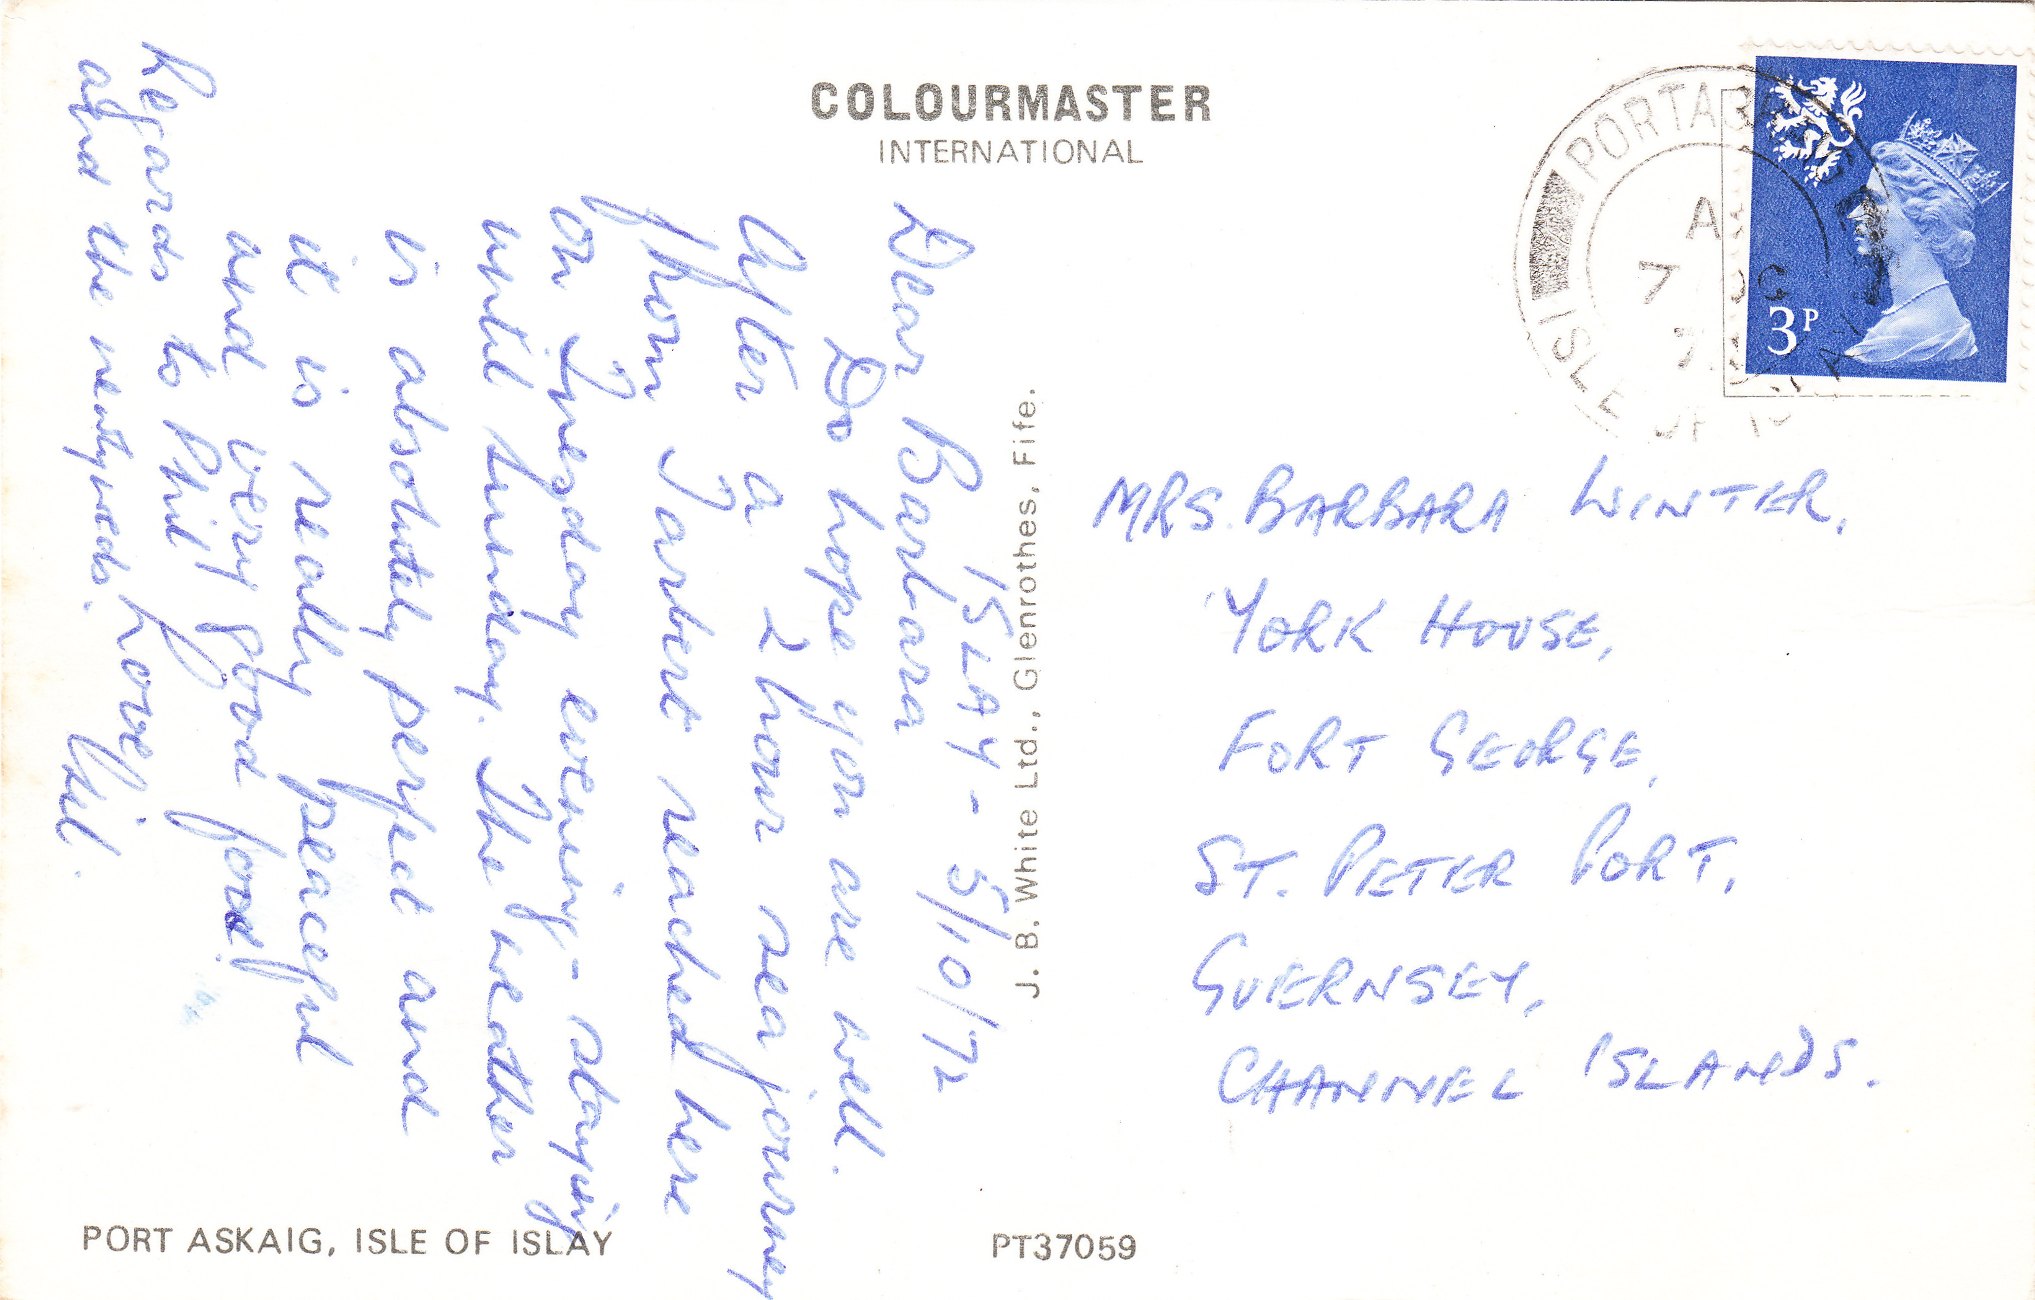 COLOURMASTER
INTERNATIONAL
ISLAY - 5/10/72
Dear Barbara
Do hope you are well.
After a 2 hour sea journey
from Tarbert reached here
on Tuesday evening - staying
until Sunday. The weather
is absolutely perfect and
it is really peaceful
and very good food!
Regards to Phil
and the
Love
J. B. White Ltd., Glenrothes, Fife.
PORT ASKAIG, ISLE OF ISLAY
PT37059
3P
PORTA
A
7
ISLE OF
MRS. BARBARA WINTER,
YORK HOUSE,
FORT GEORGE,
ST. PETER PORT,
GUERNSEY,
CHANNEL ISLANDS.